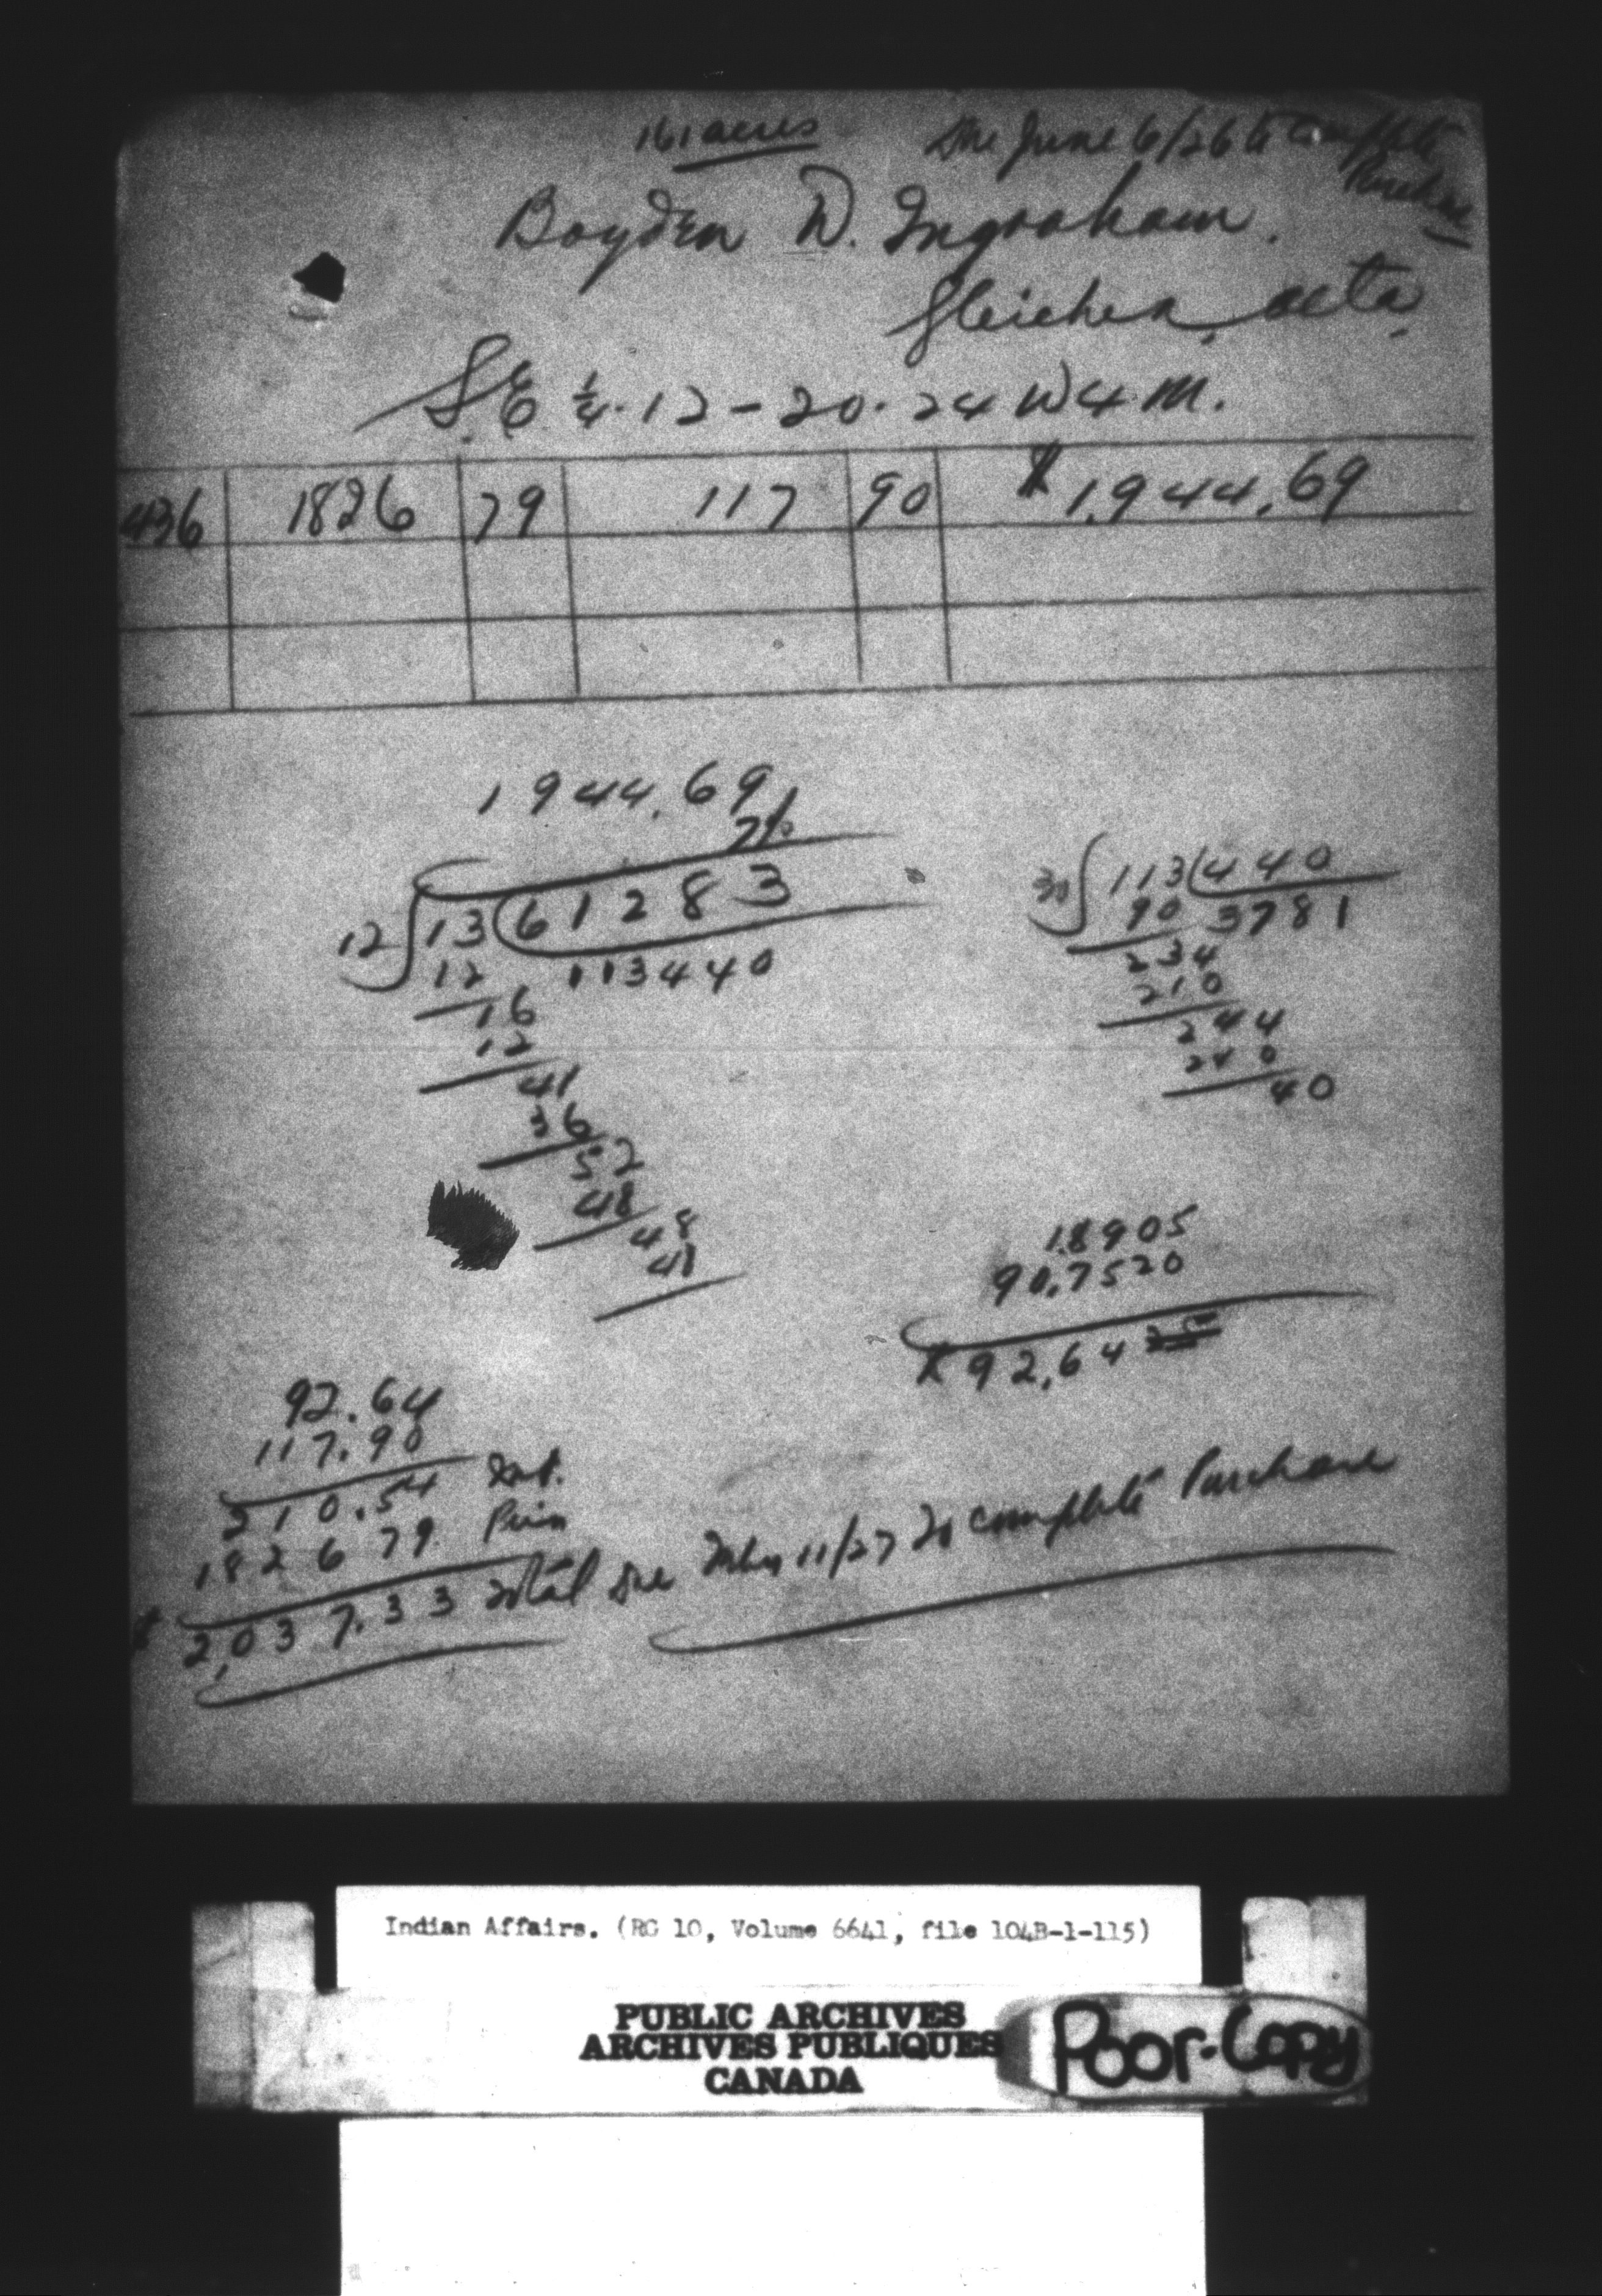 161 acres
Due June 6/26 to Complete
Purchase
Boyden W. Ingraham.
Gleichen, Alta.
S.E. ¼. 12 - 20. 24 W 4. M.
436 1826 79 117 90 $1,944.69
1944.69
7%
12 13 61283
12 113440
16
12
41
36
52
48
48
48
30 113 440
90 3781
234
210
244
240
40
1.8905
90.7520
$92.6425
92.64
117.90
210.54 Int.
1826 79 Prin
$2,037.33 Total due 11/27 to complete Purchase
Indian Affairs. (RG 10, Volume 6641, file 104B-1-115)
PUBLIC ARCHIVES
ARCHIVES PUBLIQUES
CANADA
Poor-Copy